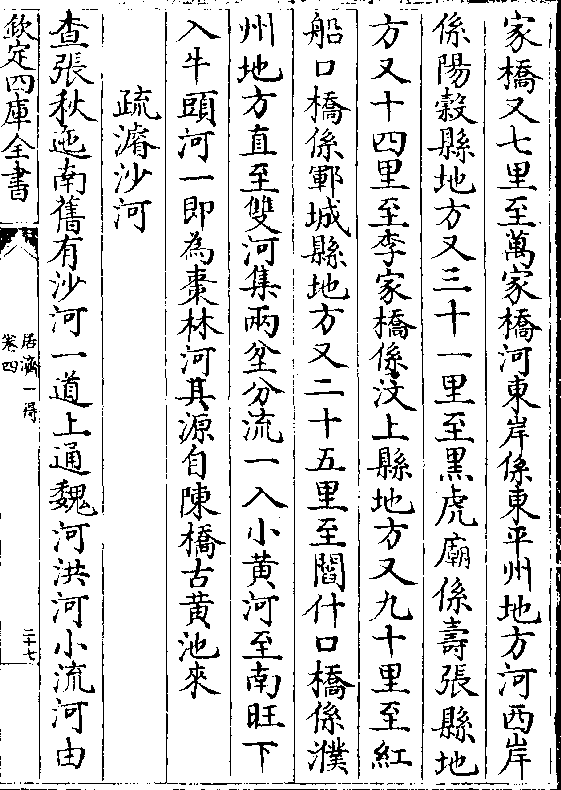 家橋又七里至萬家橋河東岸係東平州地方河西岸
係陽穀縣地方又三十一里至黑虎廟係壽張縣地
方又十四里至李家橋係汶上縣地方又九十里至紅
船口橋係鄆城縣地方又二十五里至閻什口橋係濮
州地方直至雙河集兩岔分流一入小黄河至南旺下
入牛頭河一即為棗林河其源自陳橋古黄池來
疏濬沙河
查張秋迤南舊有沙河一道上通魏河洪河小流河由
欽定四庫全書
居濟一得
卷四
二十七